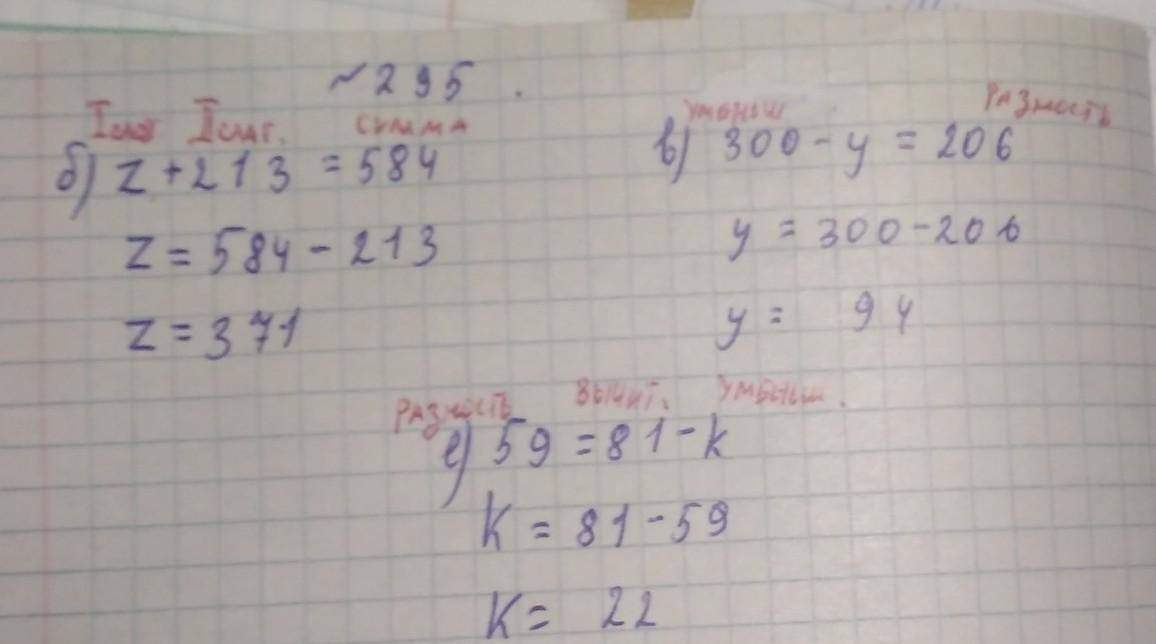 № 295.
I слаг II слаг. сумма
б) z + 213 = 584
z = 584 - 213
z = 371
Уменьш Разность
в) 300 - y = 206
y = 300 - 206
y = 94
Разность Вычит. Уменьш.
е) 59 = 81 - k
k = 81 - 59
k = 22